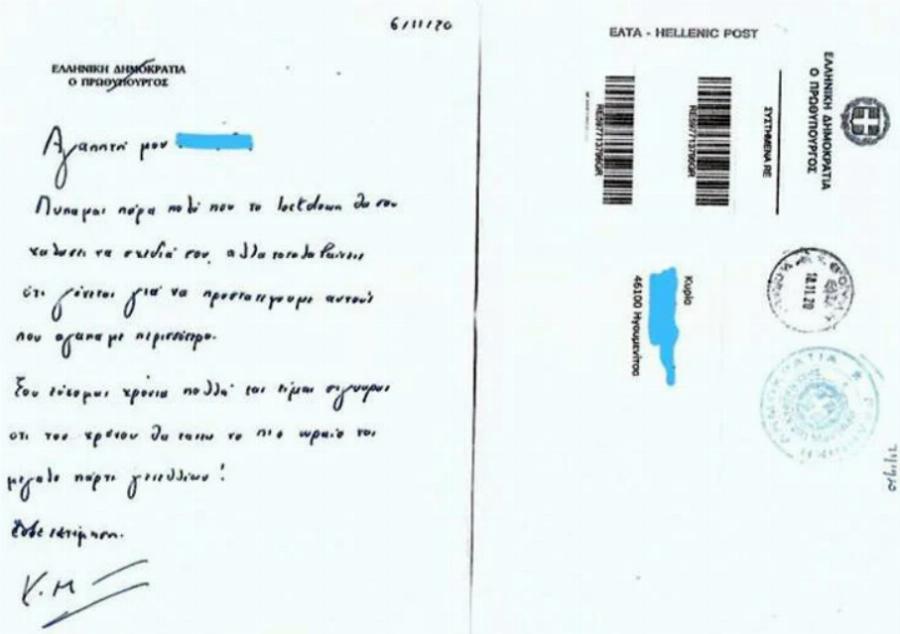 6/11/20
ΕΛΛΗΝΙΚΗ ΔΗΜΟΚΡΑΤΙΑ
Ο ΠΡΩΘΥΠΟΥΡΓΟΣ
Αγαπητή μου
Λυπαμαι πάρα πολύ που το lockdown θα σου
χαλασει τα σχεδιά σου, αλλα καταλαβαίνεις
ότι γίνεται γιά να προστατεψουμε αυτούς
που αγαπαμε περισσότερο.
Σου εύχομαι χρόνια πολλά και είμαι σιγουρος
οτι του χρόνου θα το πιο ωραίο και
μεγαλο πάρτι γενεθλίων!
εκτίμηση.
Κ.Μ
ΕΛΤΑ - HELLENIC POST
ΕΛΛΗΝΙΚΗ ΔΗΜΟΚΡΑΤΙΑ
Ο ΠΡΩΘΥΠΟΥΡΓΟΣ
ΣΥΣΤΗΜΕΝΑ RE
RE597713796GR
RE597713796GR
Κυρία
46100 Ηγουμενίτσα